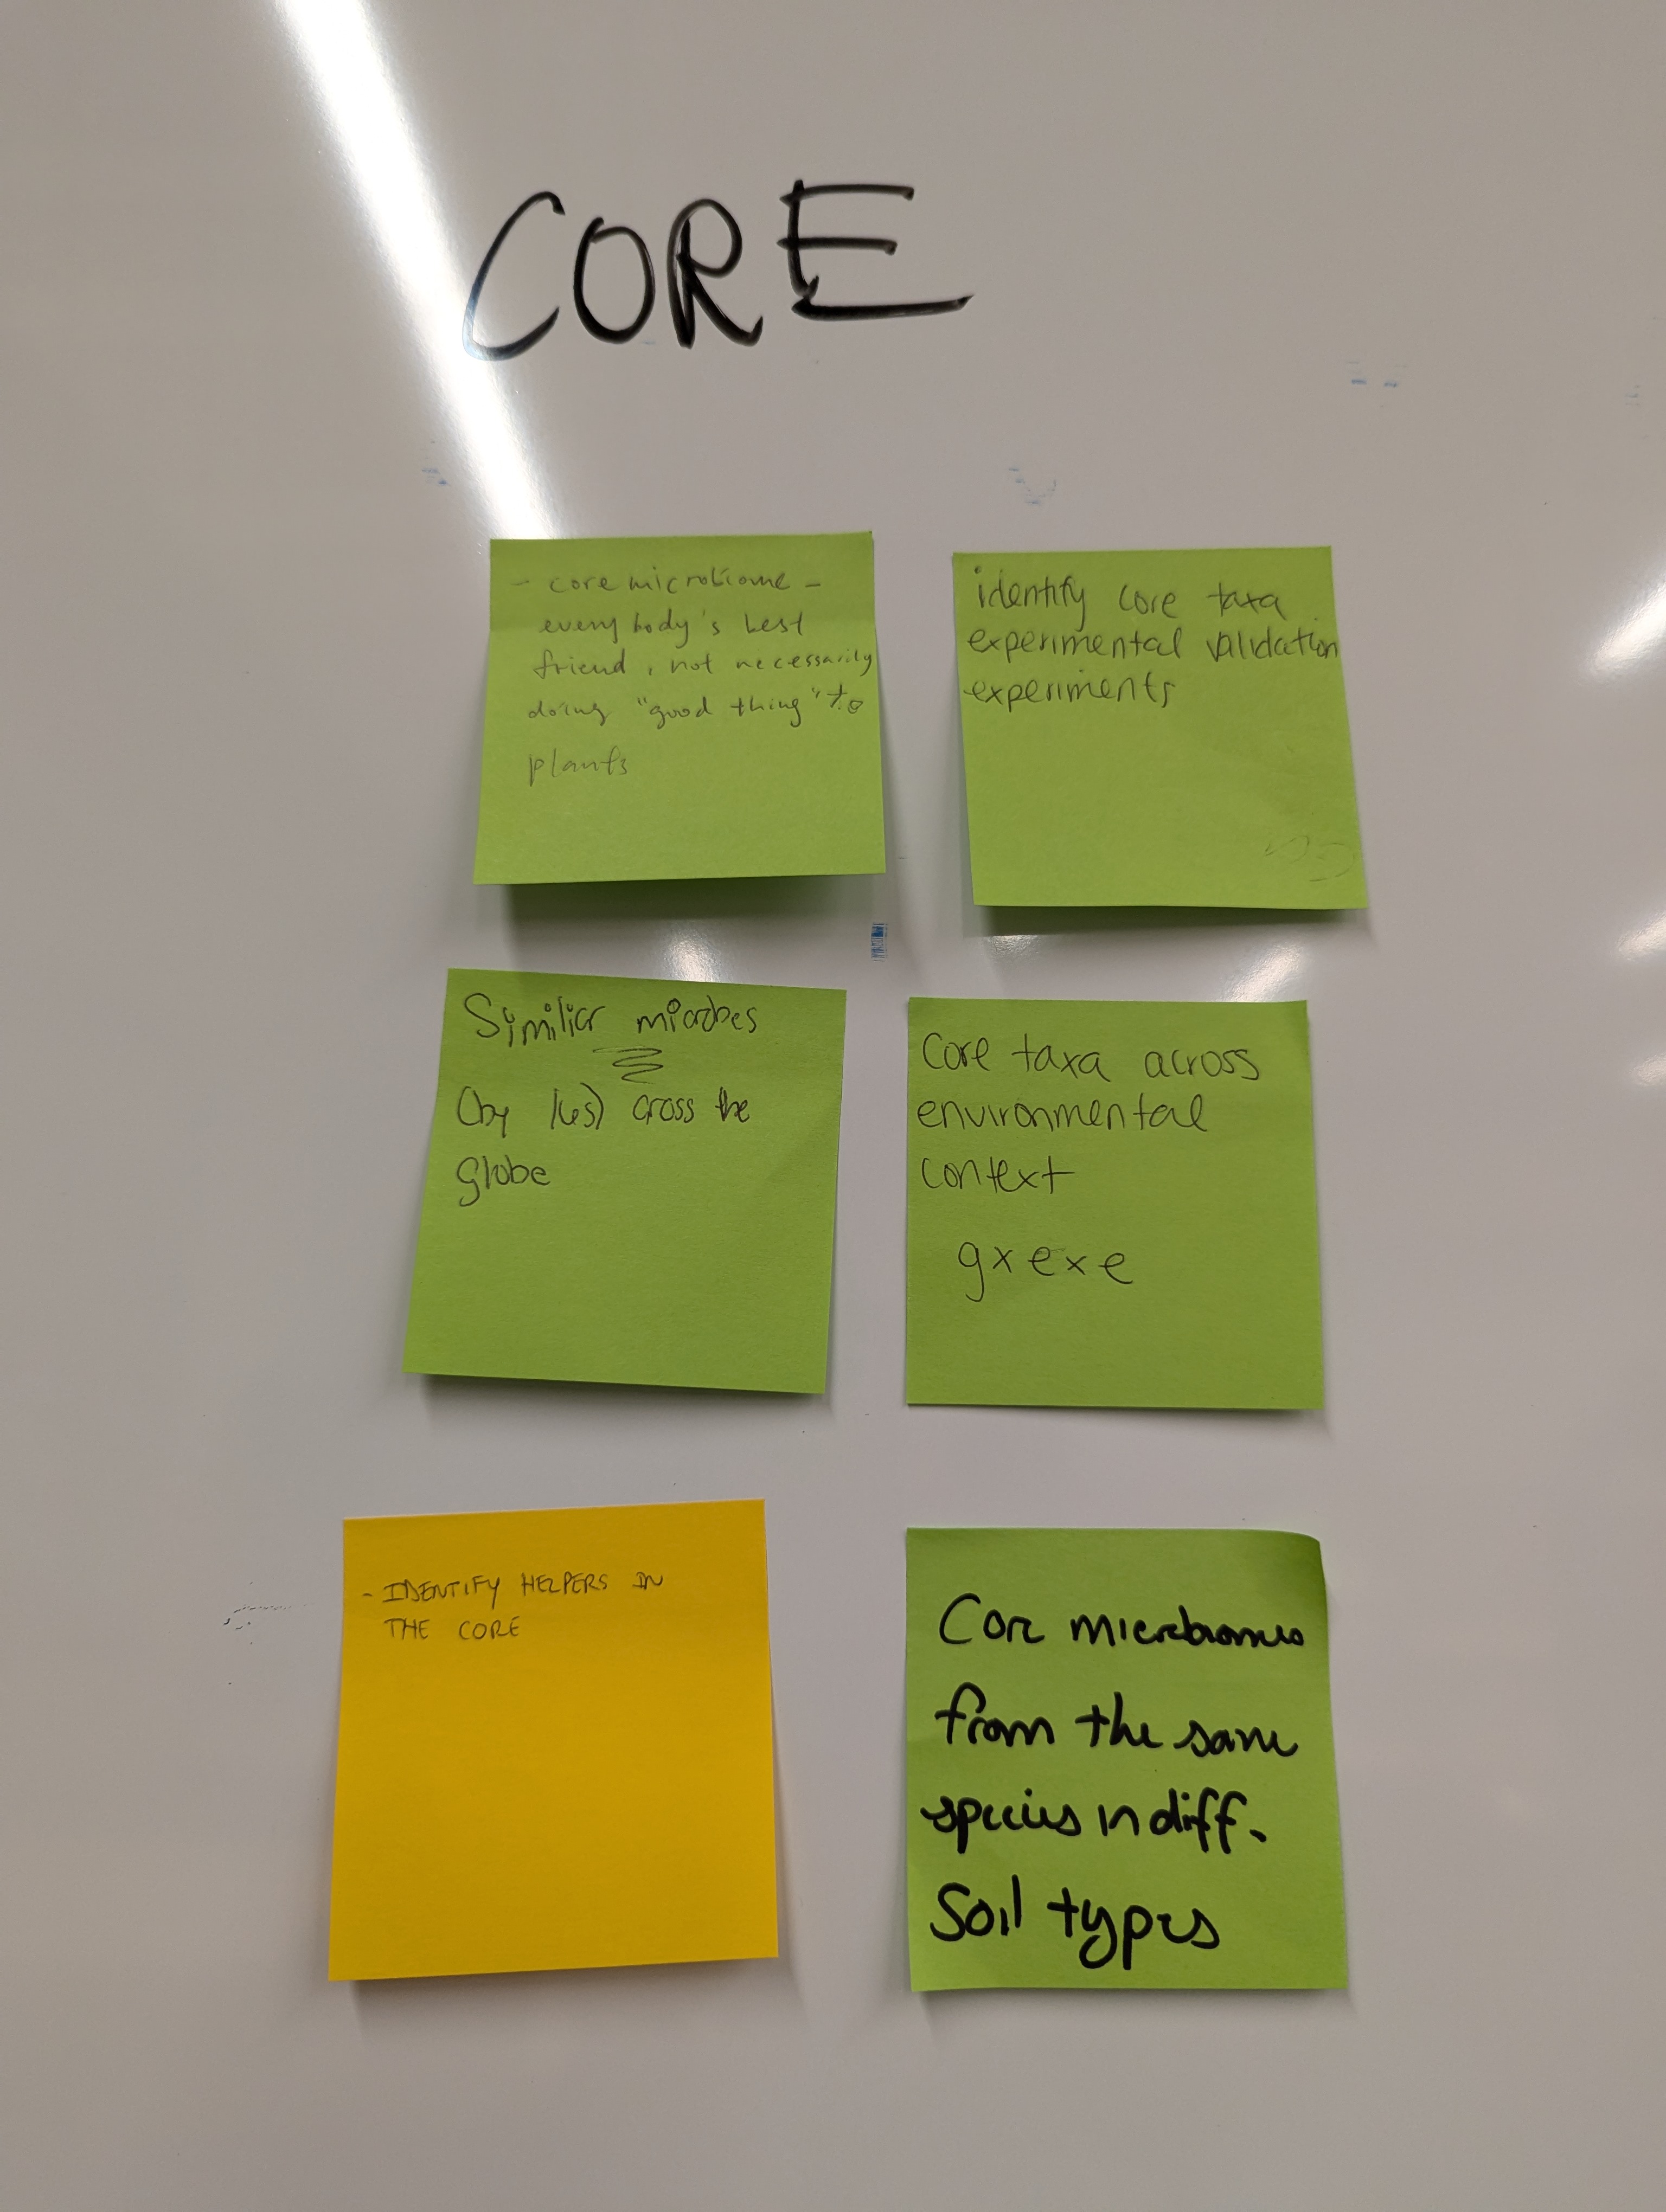 CORE
- core microbiome -
everybody's best
friend, not necessarily
doing "good thing" to
plants
identify core taxa
experimental validation
experiments
Similiar microbes
(by 16s) cross the
globe
Core taxa across
environmental
context
gxexe
- IDENTIFY HELPERS IN
THE CORE
Core microbiomes
from the same
species in diff.
Soil types